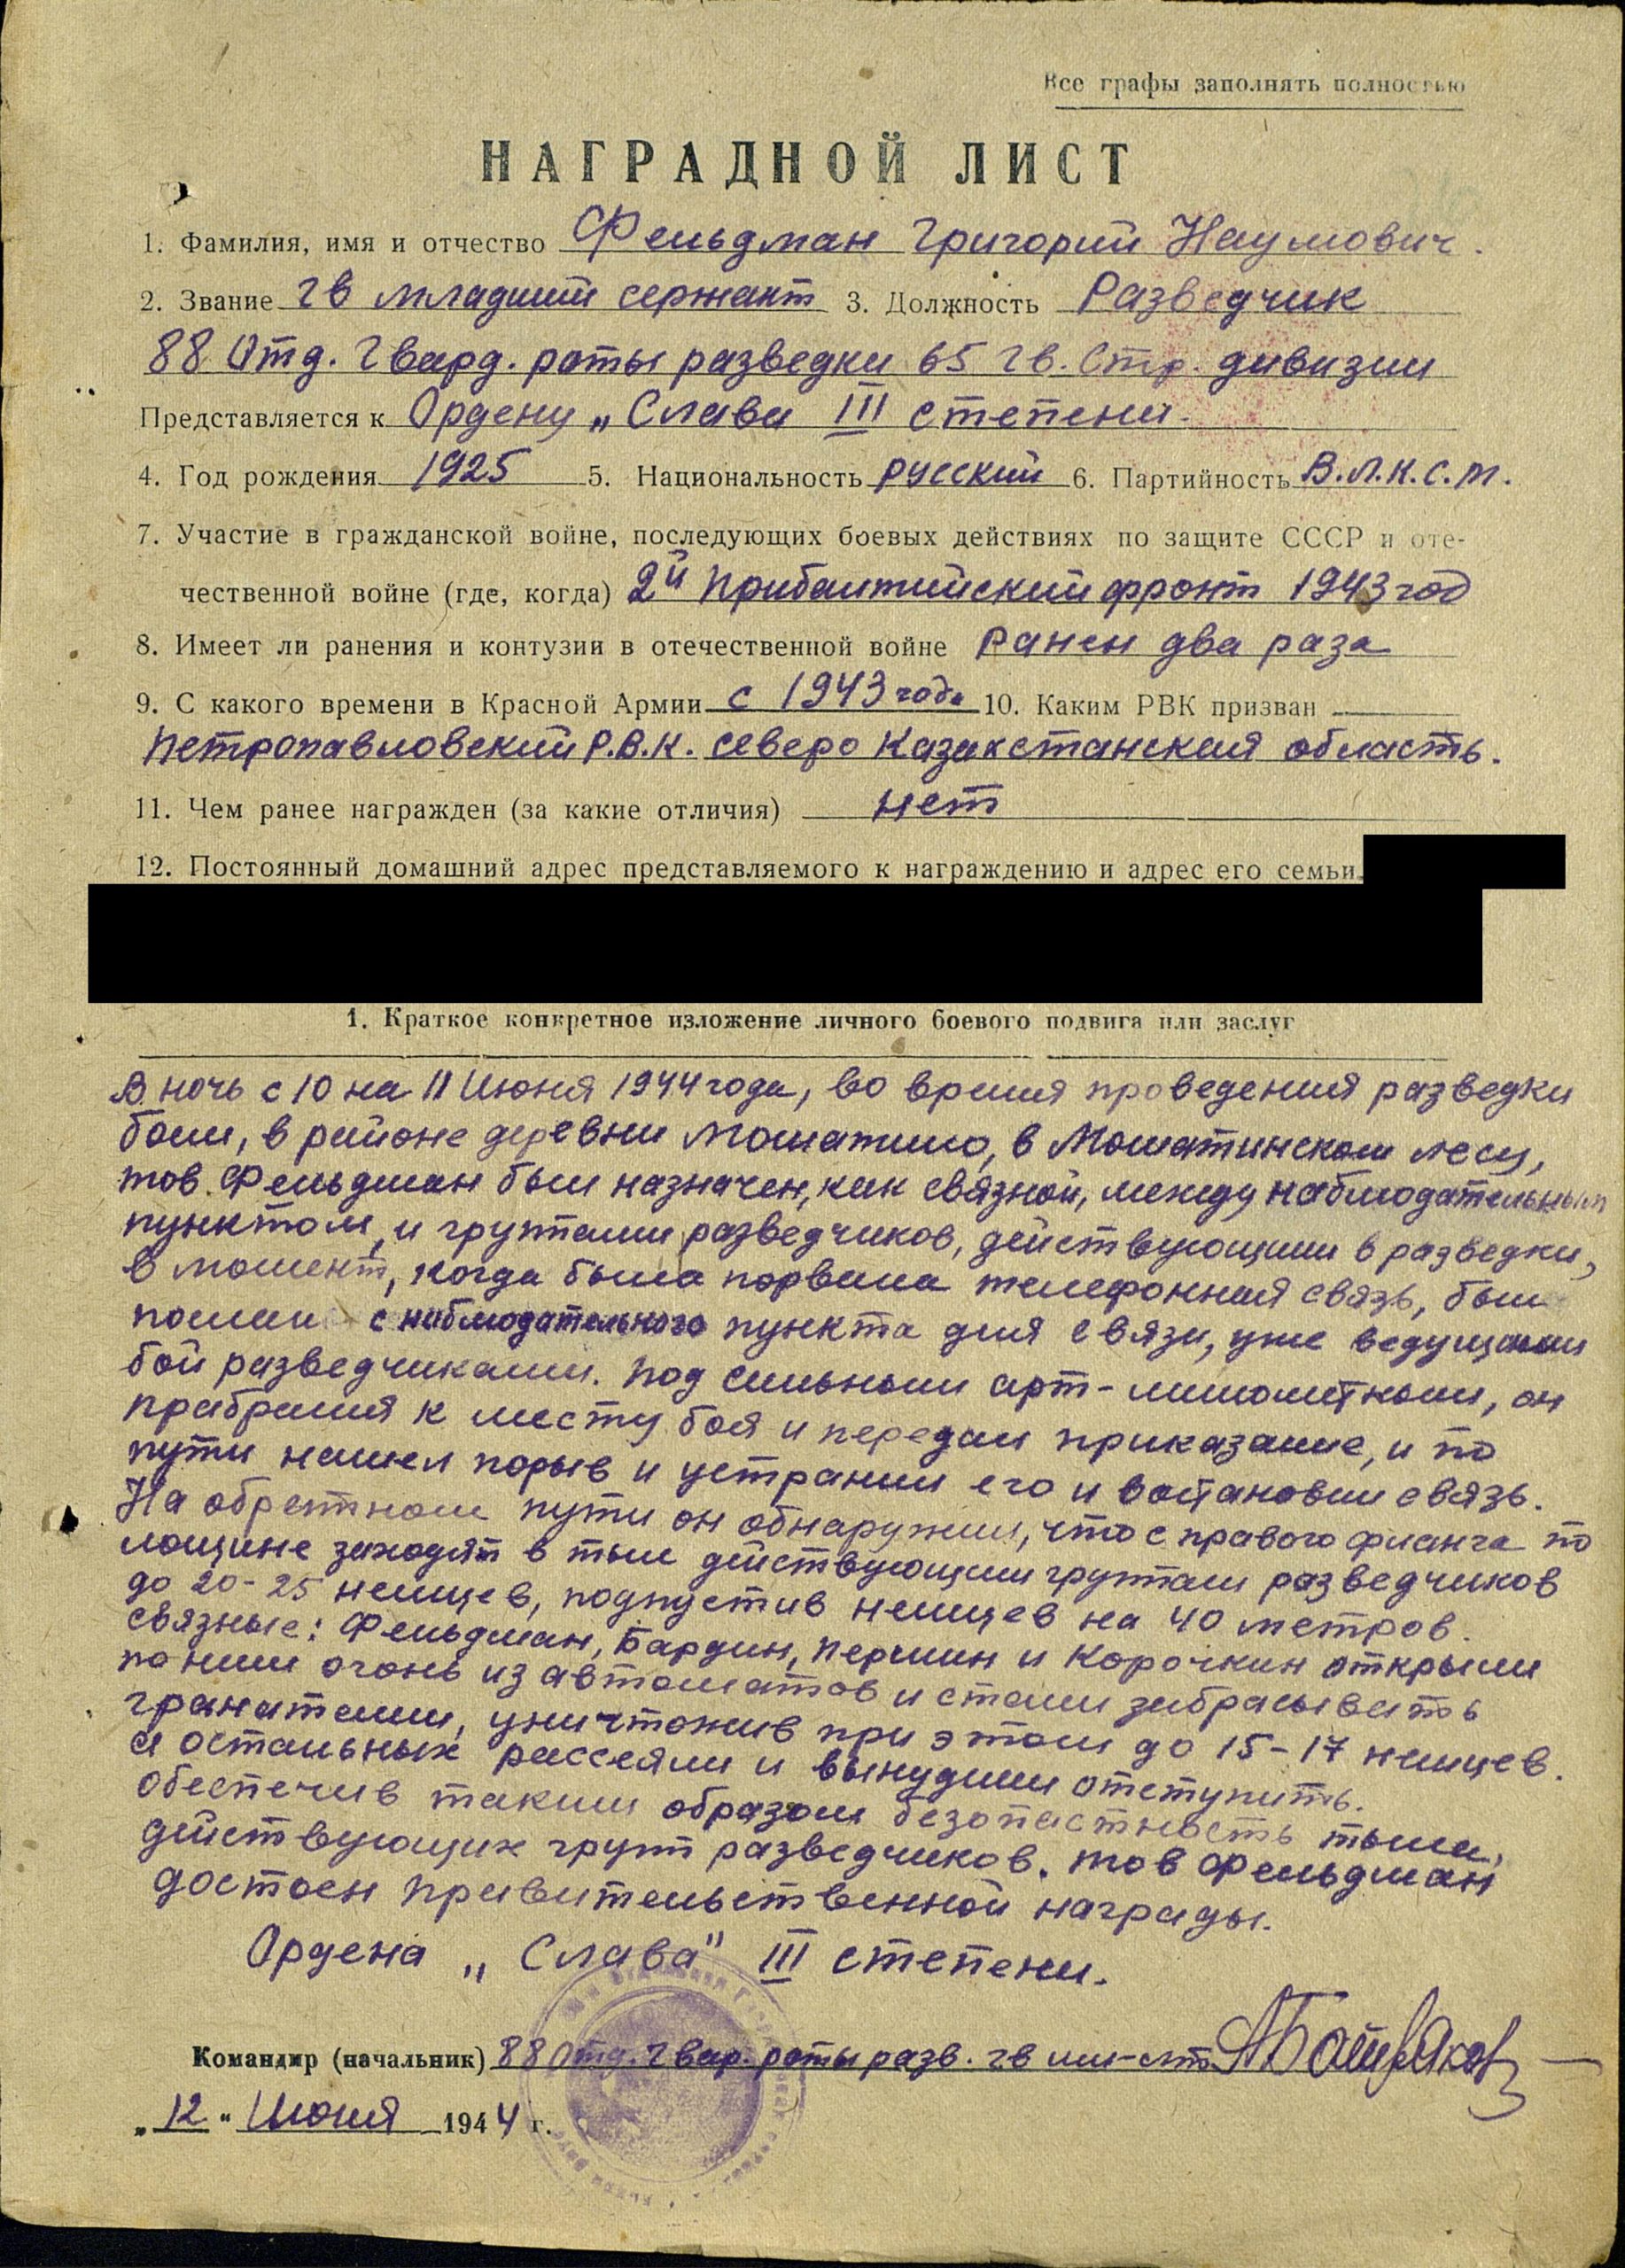 Все графы заполнять полностью
НАГРАДНОЙ ЛИСТ
1. Фамилия, имя и отчество Фельдман Григорий Наумович.
2. Звание гв младший сержант 3. Должность Разведчик
88 Отд. Гвард. роты разведки 65 гв. Стр. дивизии
Представляется к Ордену „Слава III степени.
4. Год рождения 1925 5. Национальность русский 6. Партийность В.Л.К.С.М.
7. Участие в гражданской войне, последующих боевых действиях по защите СССР и оте-
чественной войне (где, когда) 2й Прибалтийский фронт 1943 год
8. Имеет ли ранения и контузии в отечественной войне ранен два раза
9. С какого времени в Красной Армии с 1943 года 10. Каким РВК призван
Петропавловский Р.В.К. северо Казахстанская область.
11. Чем ранее награжден (за какие отличия) нет
12. Постоянный домашний адрес представляемого к награждению и адрес его семьи
1. Краткое конкретное изложение личного боевого подвига или заслуг
В ночь с 10 на 11 Июня 1944 года, во время проведения разведки
боем, в районе деревни в лесу,
тов. Фельдман был назначен, как связной, между наблюдательным
пунктом, и группами разведчиков, действующими в разведки,
в момент, когда была порвана телефонная связь, был
послан с наблюдательного пункта для связи, уже ведущими
бой разведчиками. Под сильным арт-минометным, он
пробрался к месту боя и передал приказание, и по
пути нашел порыв и устранил его и востановил связь.
На обратном пути он обнаружил, что с правого фланга по
лощине заходят в тыл действующим группам разведчиков
до 20-25 немцев, подпустив немцев на 40 метров.
связные: Фельдман, Бардин, Першин и Корочкин открыли
по ним огонь из автоматов и стали забрасывать
гранатами, уничтожив при этом до 15-17 немцев.
а остальных рассеяли и вынудили отступить.
обеспечив таким образом безопастность тыла,
действующих групп разведчиков. тов Фельдман
достоен правительственной награды.
Ордена „Слава" III степени.
Командир (начальник) 88 Отд. гвар. роты разв. гв мл-лт
„12" Июня 1944 г.